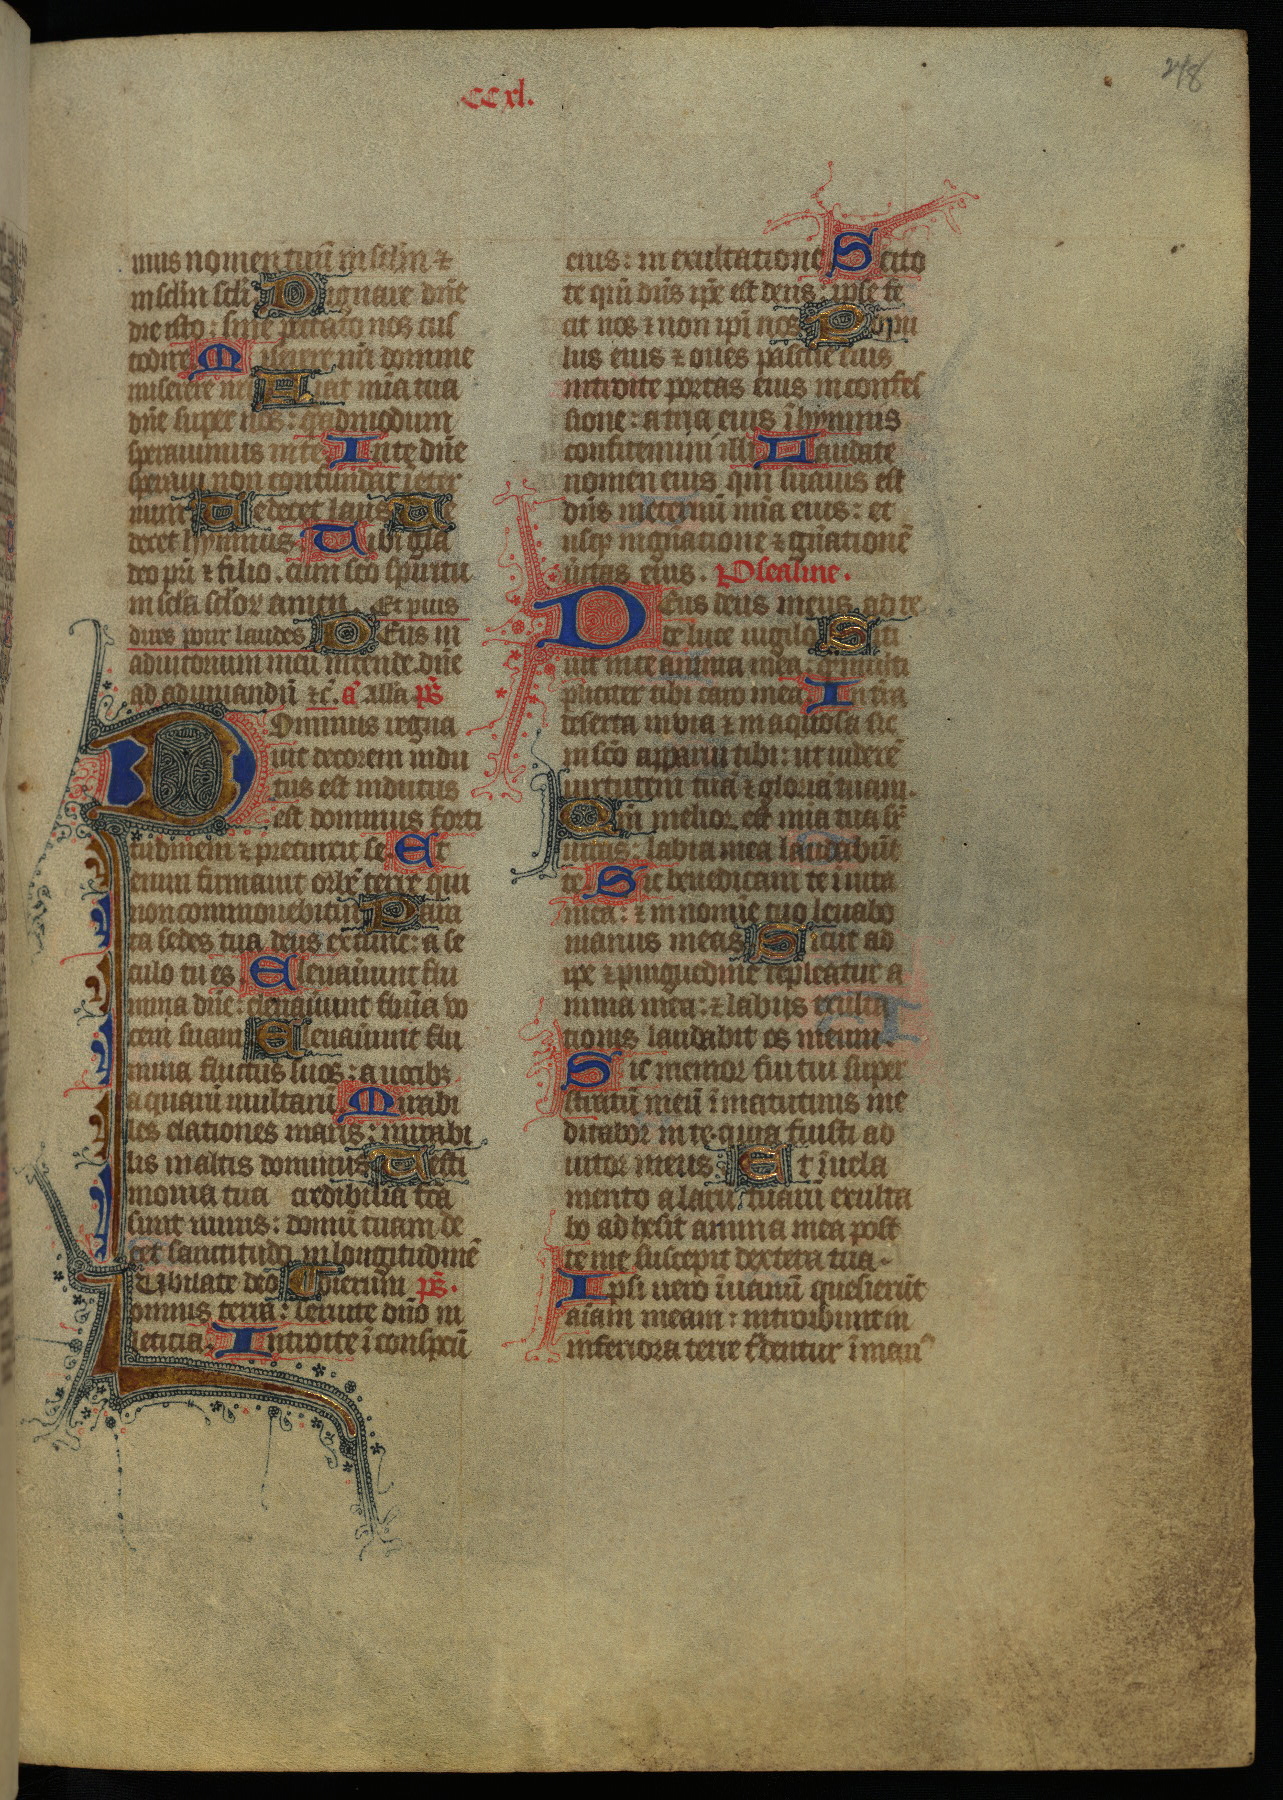 CCxl.
248
mus nomen tuū in sclm̄ ⁊
in sclm̄ scli Dignare dn̄e
die isto: sine peccato nos cus
todire Miserere nr̄i domine
miserere nr̄i Fiat mīa tua
dn̄e super nos: quēadmodum
sperauimus in te In te dn̄e
speraui non confundar īeter
num Te decet laus Te
decet hymnus Tibi glā
deo pr̄i ⁊ filio. cum sc̄o spiritu
in scl̄a scl̄or amen. Et puis
dires pour laudes Deus in
adiutorium meū intende. dn̄e
ad adiuuandū ⁊c̄. a Alla ps̄
Dominus regna
uit decorem indu
tus est indutus
est dominus forti
tudinem ⁊ precinxit se Et
enim firmauit orbē terre qui
non commouebitur Para
ta sedes tua deus extunc: a se
culo tu es. Eleuauūnt flu
mina dn̄e: eleuauūnt flumīa vo
cem suam Eleuauūnt flu
mina fluctus suos: a uocibz
aquarū multarū Mirabi
les elationes maris: mirabi
lis in altis dominus Testi
monia tua credibilia fc̄a
sunt nimis: domū tuam de
cet sanctitudo in longitudinē
dierum ps̄.
Iubilate deo
omnis terra: seruite dn̄o in
leticia Introite ī conspectū
eius: in exultatione Scito
te qm̄ dn̄s ip̄e est deus: ipse fe
cit nos ⁊ non ip̄i nos Popu
lus eius ⁊ oues pascue eius
introite portas eius in confes
sione: atria eius ī hymnis
confitemini illi Laudate
nomen eius qm̄ suauis est
dn̄s īneternū mīa eius: et
usqz in gn̄atione ⁊ gn̄ationē
ūitas eius. Psealme.
Deus deus meus ad te
de luce uigilo Siti
uit in te anima mea: qm̄ multi
pliciter tibi caro mea In tr̄a
deserta inuia ⁊ inaquosa sic
in sc̄o apparui tibi: ut uiderē
uirtutem tuā ⁊ gloriā tuam.
Qm̄ melior est mīa tua sr̄
uitas: labia mea laudabūt
te Sic benedicam te ī uita
mea: ⁊ in nomīe tuo leuabo
manus meas Sicut ad
ipe ⁊ pinguedine repleatur a
nima mea: ⁊ labiis exulta
tionis laudabit os meum
Sic memor fui tui super
stratū meū ī matutinis me
ditabor in te. quia fuisti ad
iutor meus Et ī uela
mento alarū tuarū exulta
bo adhesit anima mea post
te me suscepit dextera tua.
Ipsi uero ī uanū quesierūt
aīam meam: introibunt in
inferiora terre tradentur ī man